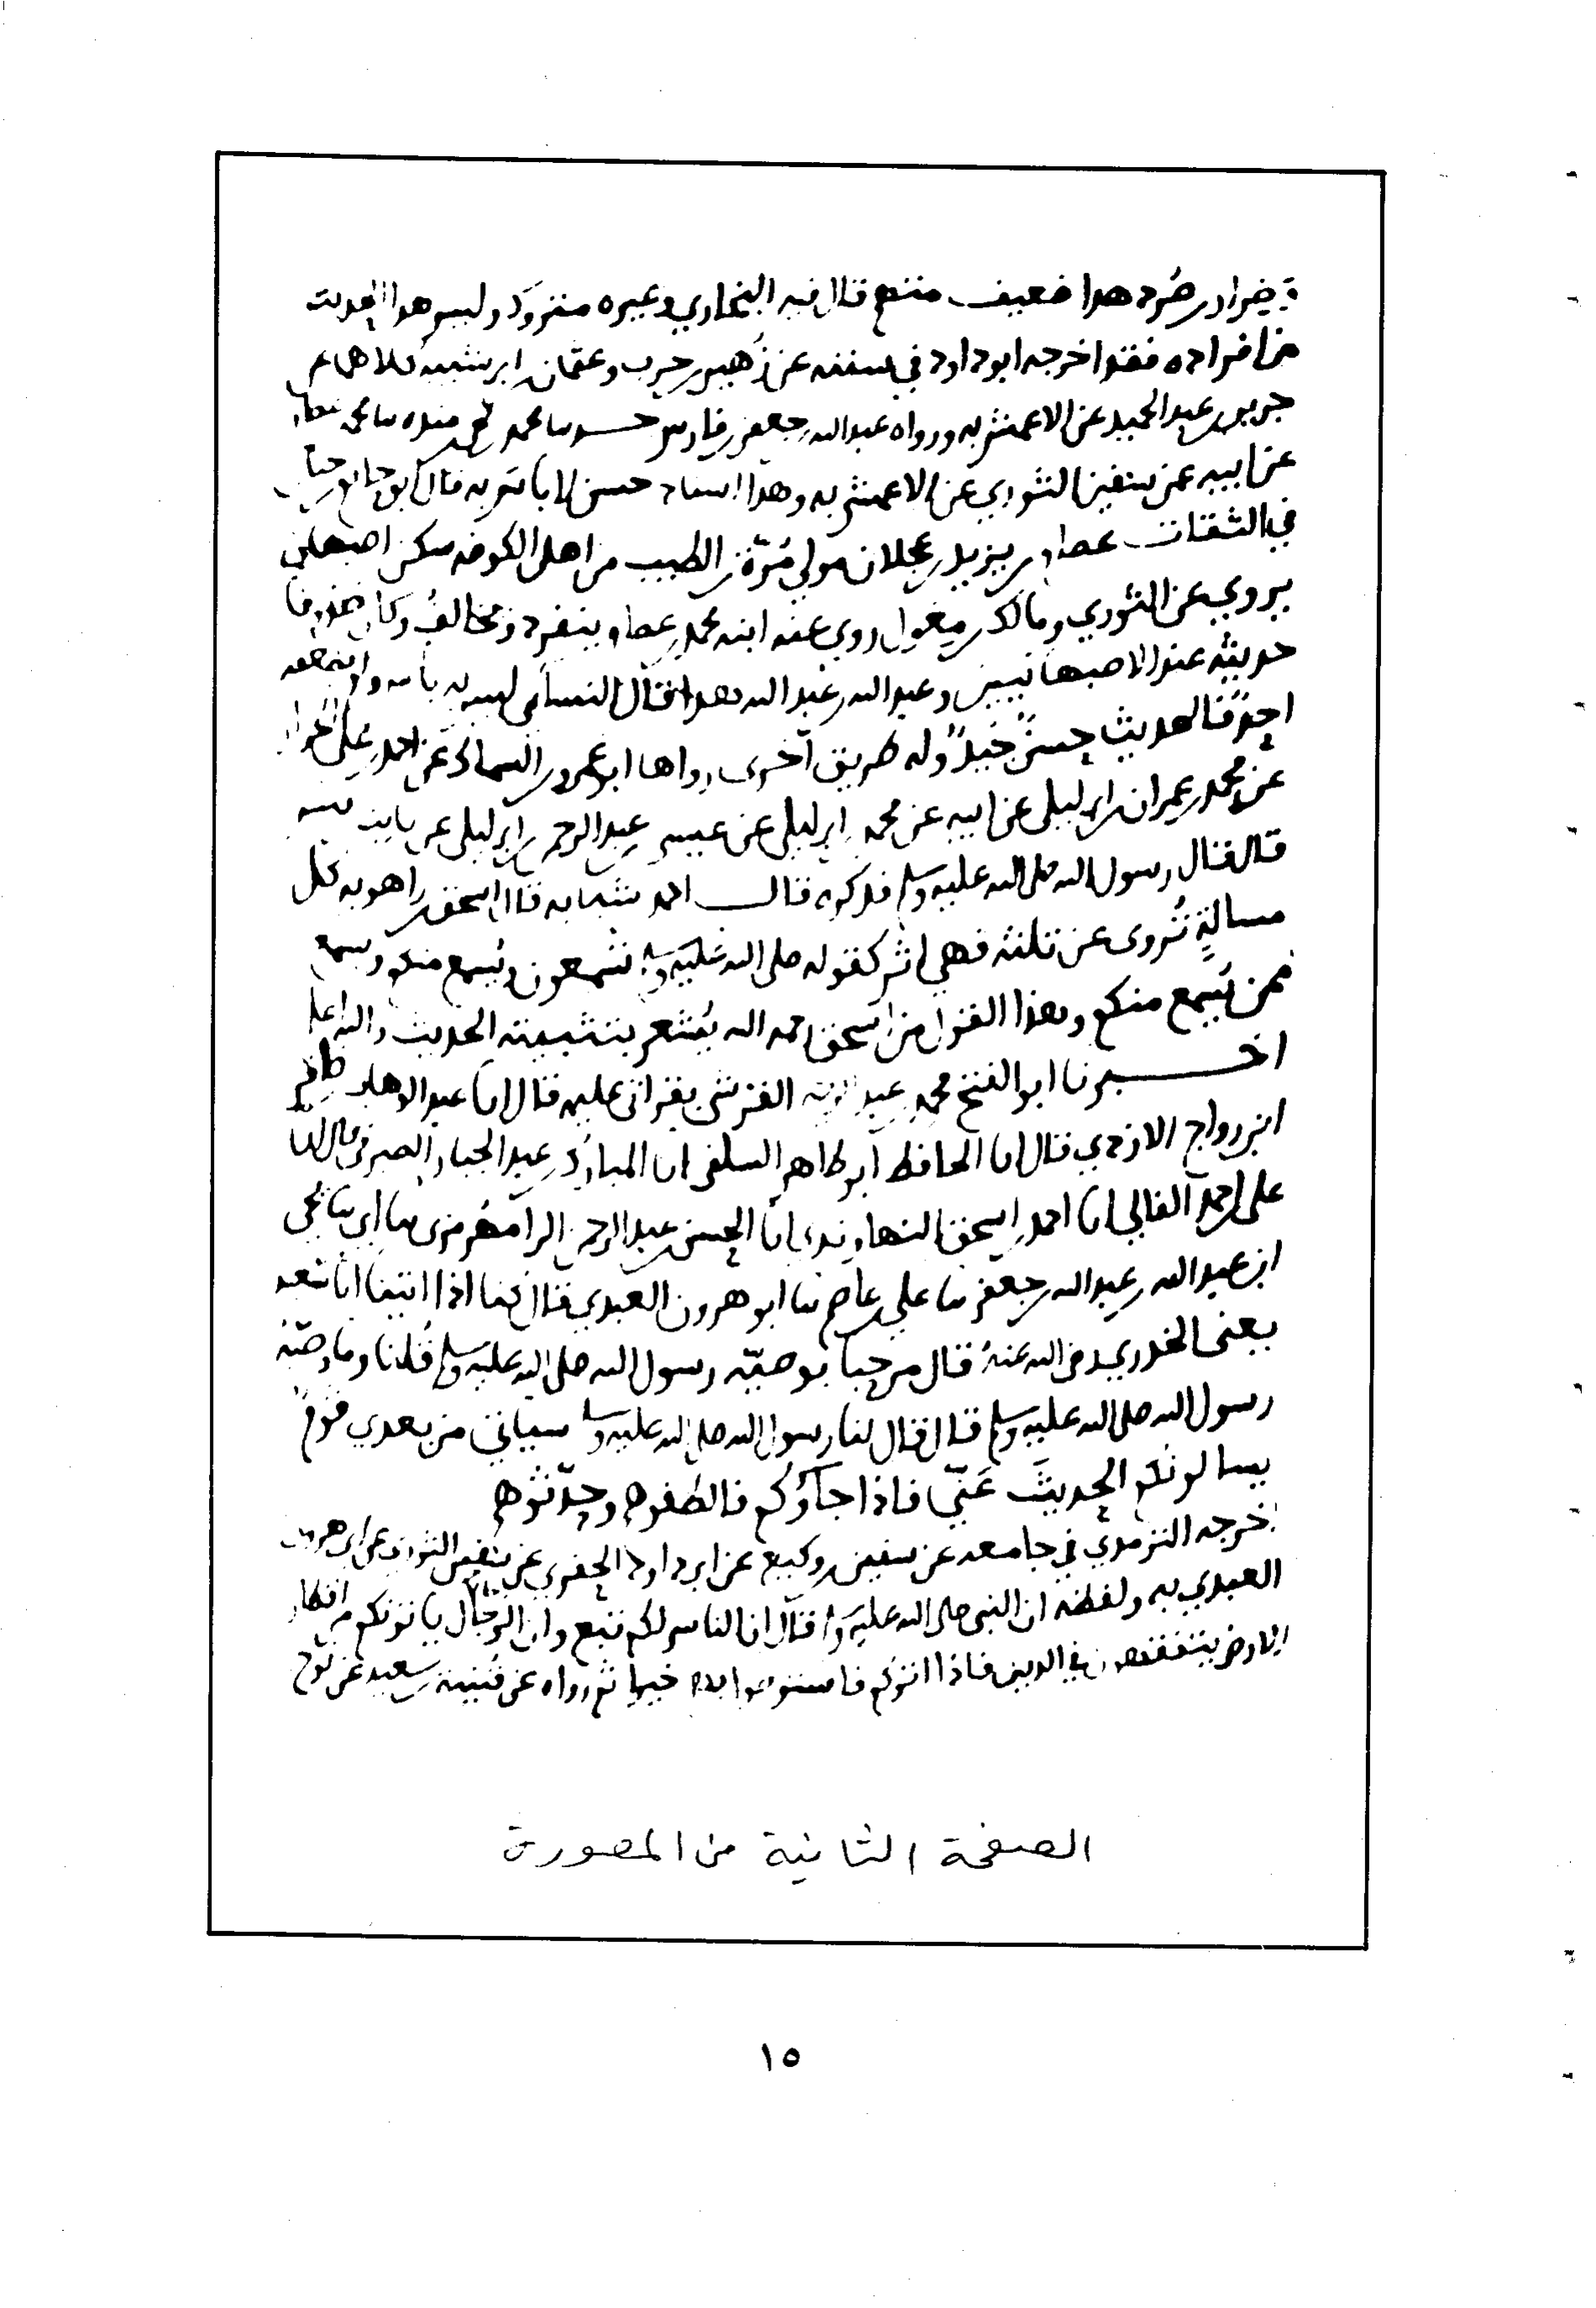 ضرار بن صرد هذا ضعيف متهم قال فيه البخاري وغيره متروك وليس هذا الحديث
من افراده فقد اخرجه ابو داود في سننه عن زهير بن حرب وعثمان بن ابي شيبة كلاهما عن
جرير بن عبد الحميد عن الاعمش به ورواه عبد الله بن جعفر بن فارس محمد بن منده
عن ابيه عن سفين الثوري عن الاعمش به وهذا اسناد حسن لا باس به قال ابو حاتم بن حبان
في الثقات عصام بن يزيد بن عجلان مولى مرة الطبيب من اهل الكوفة سكن اصبهان
يروي عن الثوري ومالك بن مغول روى عنه ابنه محمد بن عصام ينفرد ويخالف وكان صدوقا
حديثه عند الاصبهانيين وعبد الله بن عبد الله هذا قال النسائي ليس به باس ولم يضعفه
احد فالحديث حسن جيد وله طريق اخرى رواها ابو عمرو بن السماك عن احمد بن علي الخزاز
عن محمد بن عمران بن ابي ليلى عن ابيه عن محمد بن ابي ليلى عن عيسى بن عبد الرحمن بن ابي ليلى عن ثابت بن قيس
قال قال رسول الله صلى الله عليه وسلم فذكره قال احمد قال اسحق بن راهويه كل
مسالة تروى عن ثلثة فهي اثر كقوله صلى الله عليه وسلم تسمعون ويسمع منكم ويسمع
ممن يسمع منكم وهذا القول من اسحق رحمه الله يشعر بتثبيته الحديث والله اعلم
اخبرنا ابو الفتح محمد بن عبد الرحيم القرشي بقراتي عليه قال انا عبد الوهاب بن ظافر
ابن رواج الازدي قال انا الحافظ ابو طاهر السلفي انا المبارك بن عبد الجبار الصيرفي قال انا
علي بن احمد الفالي انا احمد بن اسحق النهاوندي انا الحسن بن عبد الرحمن الرامهرمزي ثنا ابي ثنا يحيى
ابن عبد الله بن عبد الله بن جعفر ثنا علي بن عاصم ثنا ابو هرون العبدي قال كنا اذا اتينا ابا سعيد
يعني الخدري رضي الله عنه قال مرحبا بوصية رسول الله صلى الله عليه وسلم قلنا وما وصية
رسول الله صلى الله عليه وسلم قال قال لنا رسول الله صلى الله عليه وسلم سياتي من بعدي قوم
يسالونكم الحديث عني فاذا جاؤكم فالطفوهم وحدثوهم
اخرجه الترمذي في جامعه عن سفين بن وكيع عن ابي داود الحفري عن سفين الثوري عن ابي هرون
العبدي به ولفظه ان النبي صلى الله عليه وسلم قال ان الناس لكم تبع وان الرجال ياتونكم من اقطار
الارض يتفقهون في الدين فاذا اتوكم فاستوصوا بهم خيرا ثم رواه عن قتيبة بن سعيد عن نوح
الصفحة الثانية من المصورة
١٥